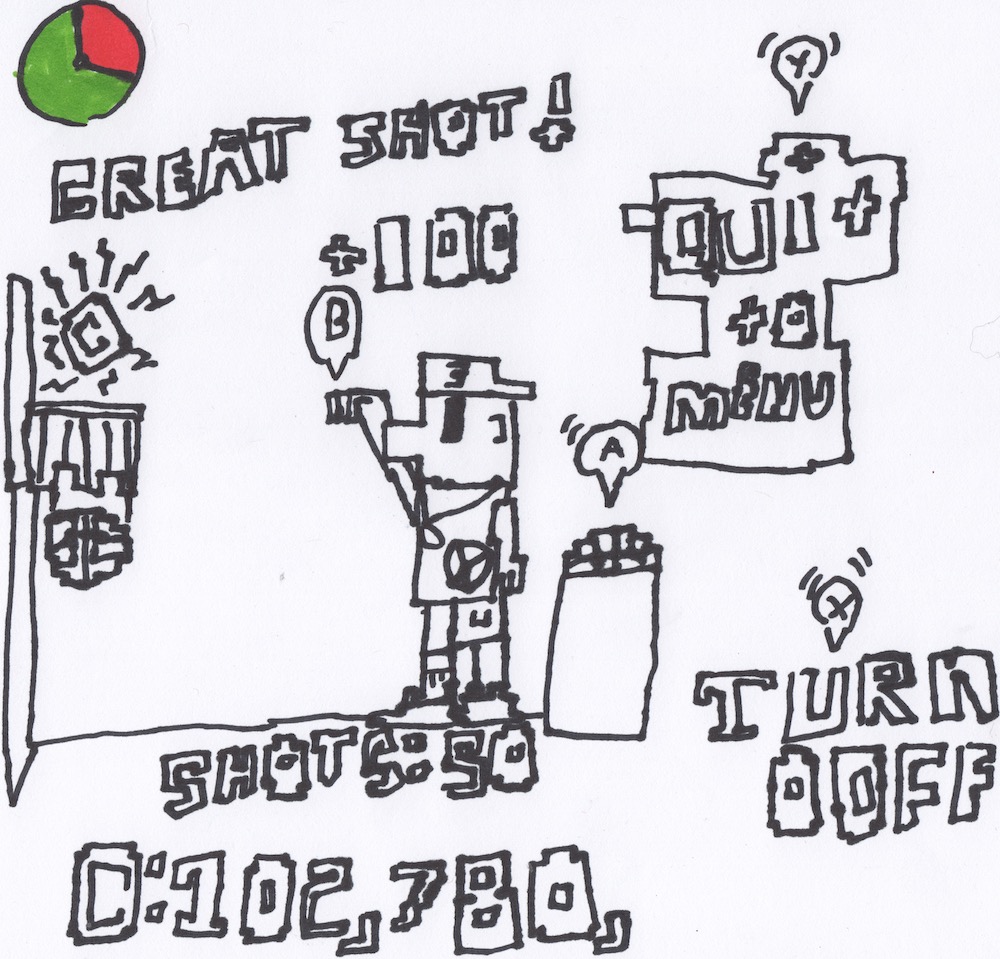 Y
GREAT SHOT!
+100
QUIT
TO
MENU
C
B
A
X
TURN
OOFF
SHOTS:50
C:102,780,